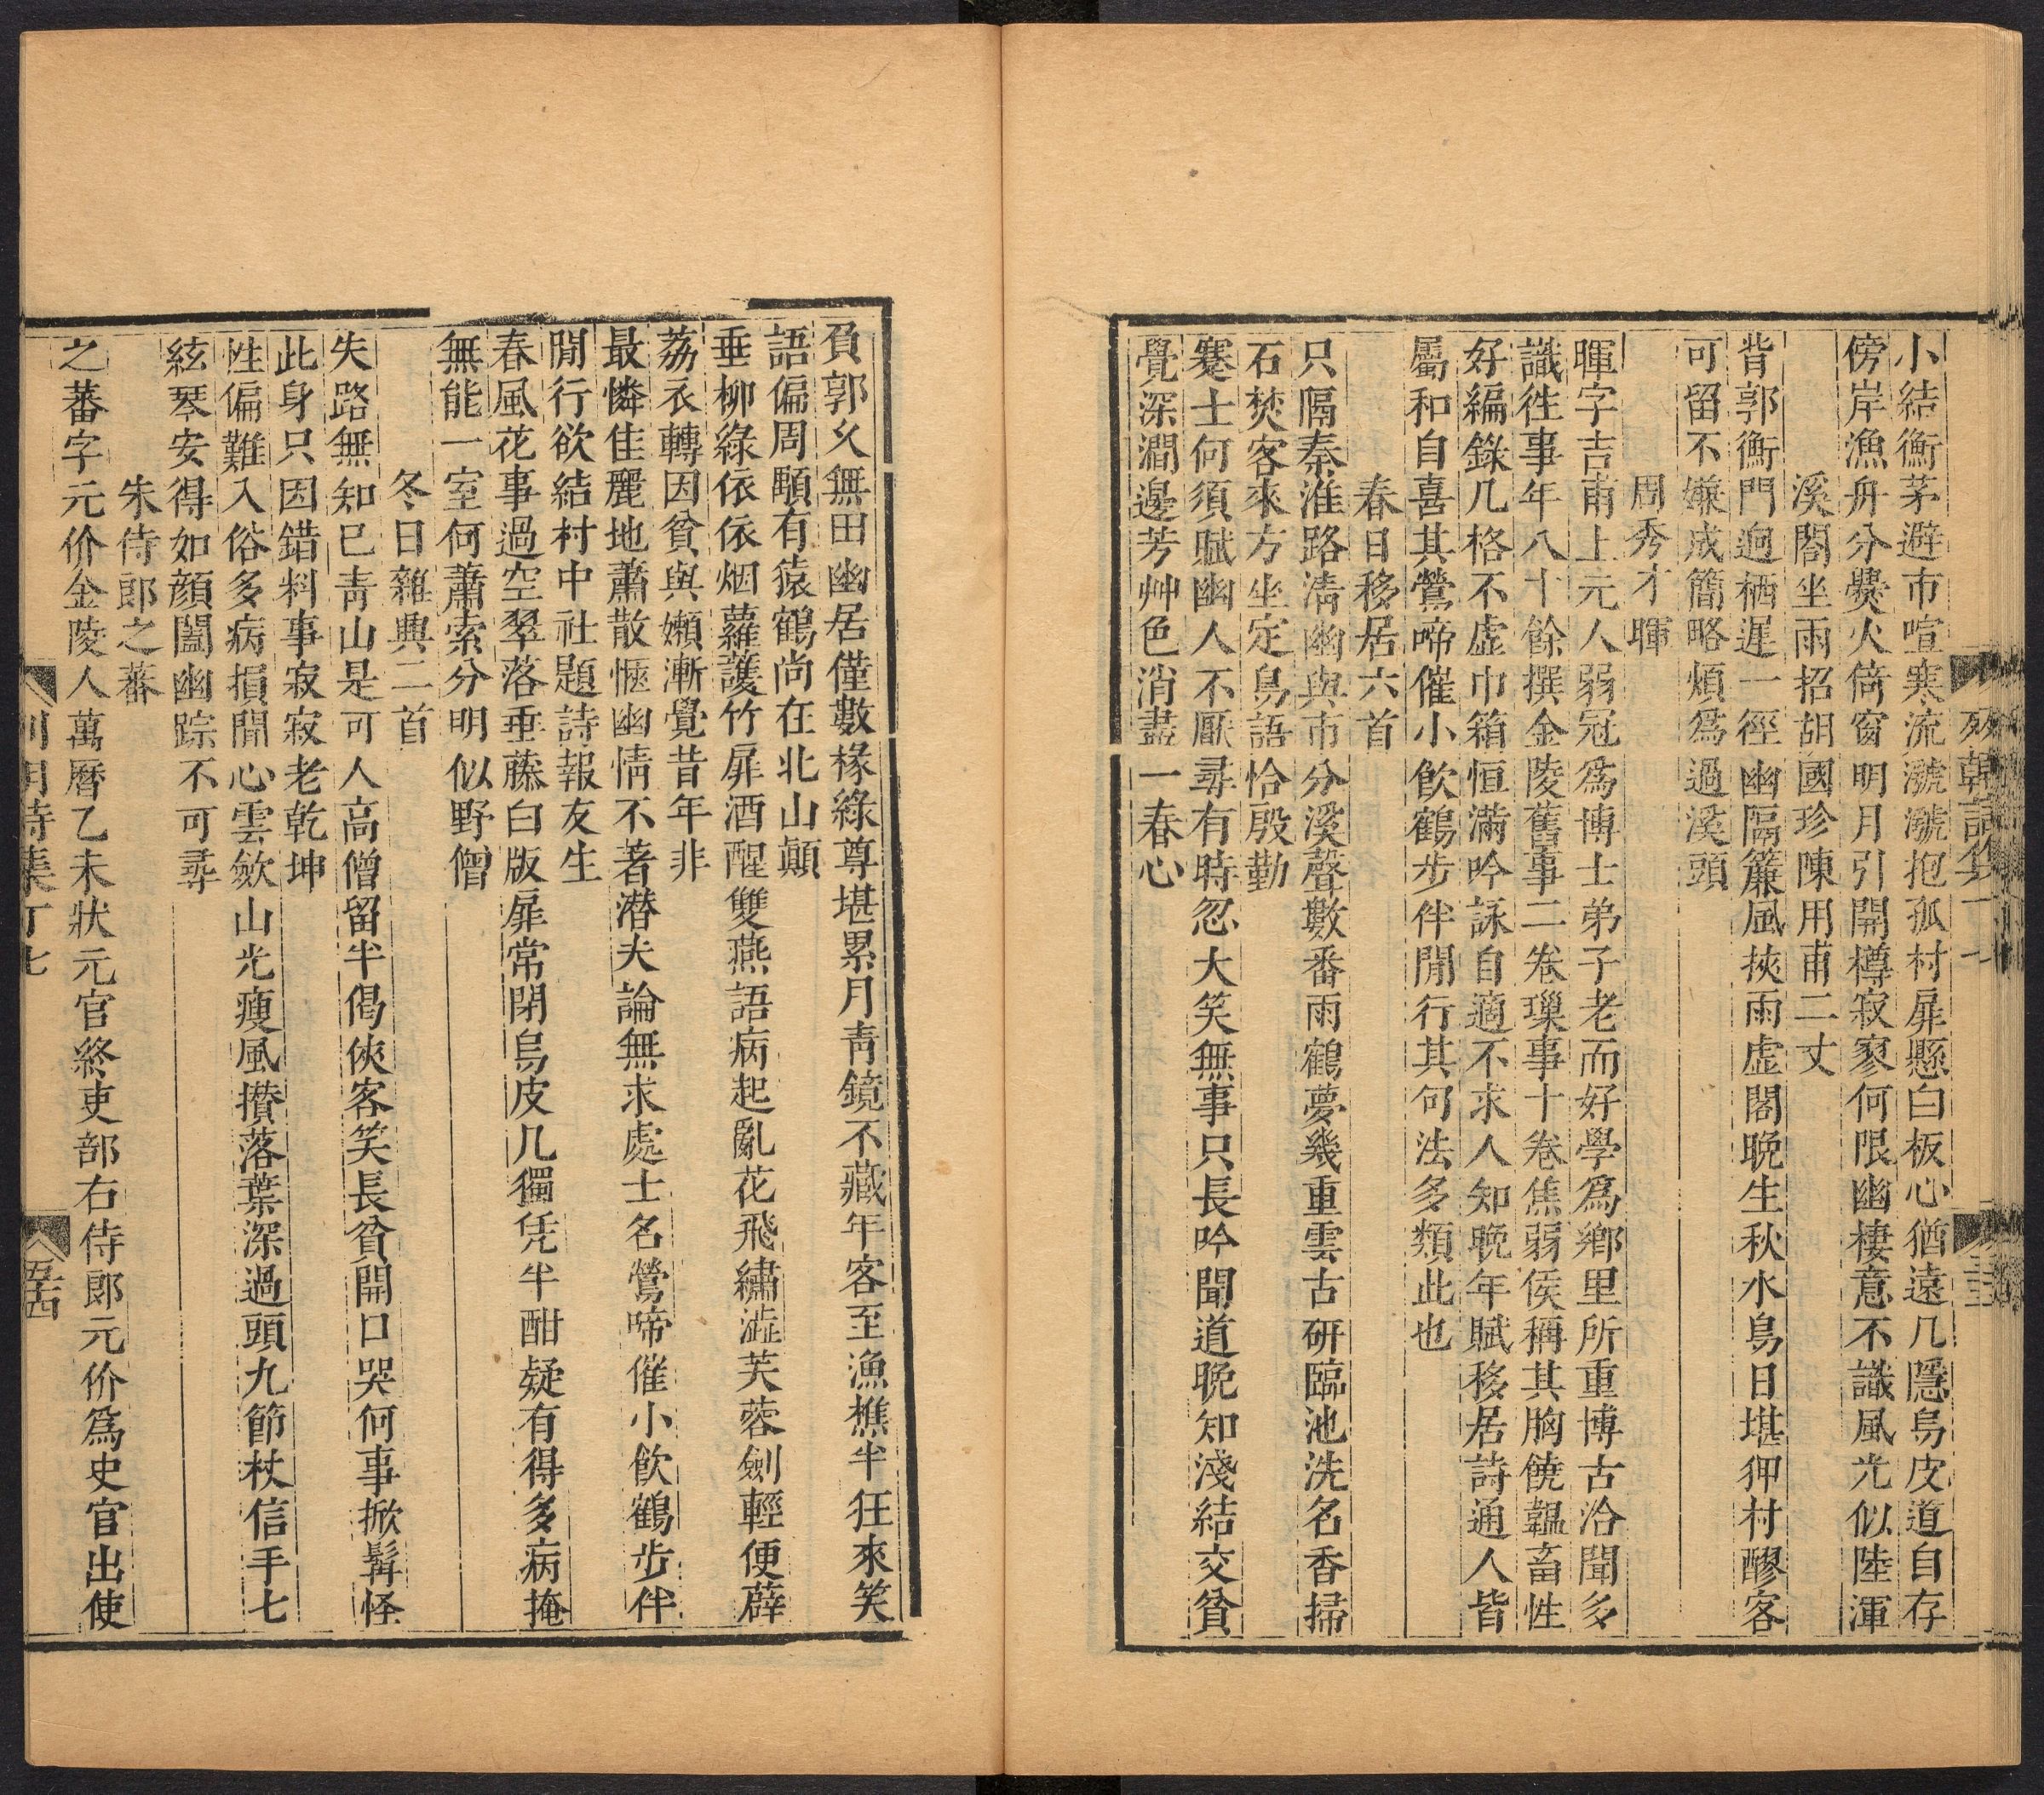 小結衡茅避市喧寒流㶁㶁抱孤村扉懸白板心猶遠几隱烏皮道自存
傍岸漁舟分爨火倚窗明月引開樽寂寥何限幽棲意不識風光似陸渾
溪閣坐雨招胡國珍陳用甫二丈
背郭衡門逈栖遲一徑幽隔簾風挾雨虛閣晚生秋水鳥日堪狎村醪客
可留不嫌成簡略煩爲過溪頭
周秀才暉
暉字吉甫上元人弱冠爲博士弟子老而好學爲鄉里所重博古洽聞多
識往事年八十餘撰金陵舊事二卷瑣事十卷焦弱侯稱其胸饒韞畜性
好編錄几格不虛巾箱恒滿吟詠自適不求人知晚年賦移居詩通人皆
屬和自喜其鶯啼催小飲鶴步伴閒行其句法多類此也
春日移居六首
只隔秦淮路清幽與市分溪聲數番雨鶴夢幾重雲古研臨池洗名香掃
石焚客來方坐定鳥語恰殷勤
蹇士何須賦幽人不厭尋有時忽大笑無事只長吟聞道晚知淺結交貧
覺深澗邊芳艸色消盡一春心
負郭久無田幽居僅數椽綠尊堪累月靑鏡不藏年客至漁樵半狂來笑
語偏周顒有猿鶴尚在北山顛
垂柳綠依依烟蘿護竹扉酒醒雙燕語病起亂花飛繡澁芙蓉劍輕便薜
荔衣轉因貧與嬾漸覺昔年非
最憐佳麗地蕭散愜幽情不著潛夫論無求處士名鶯啼催小飲鶴步伴
閒行欲結村中社題詩報友生
春風花事過空翠落垂藤白版扉常閉烏皮几獨凭半酣疑有得多病掩
無能一室何蕭索分明似野僧
冬日雜興二首
失路無知已靑山是可人高僧留半偈俠客笑長貧開口哭何事掀髯怪
此身只因錯料事寂寂老乾坤
性偏難入俗多病損閒心雲斂山光瘦風攢落葉深過頭九節杖信手七
絃琴安得如顏闔幽踪不可尋
朱侍郎之蕃
之蕃字元价金陵人萬曆乙未狀元官終吏部右侍郎元价爲史官出使
列朝詩集丁七
五十四